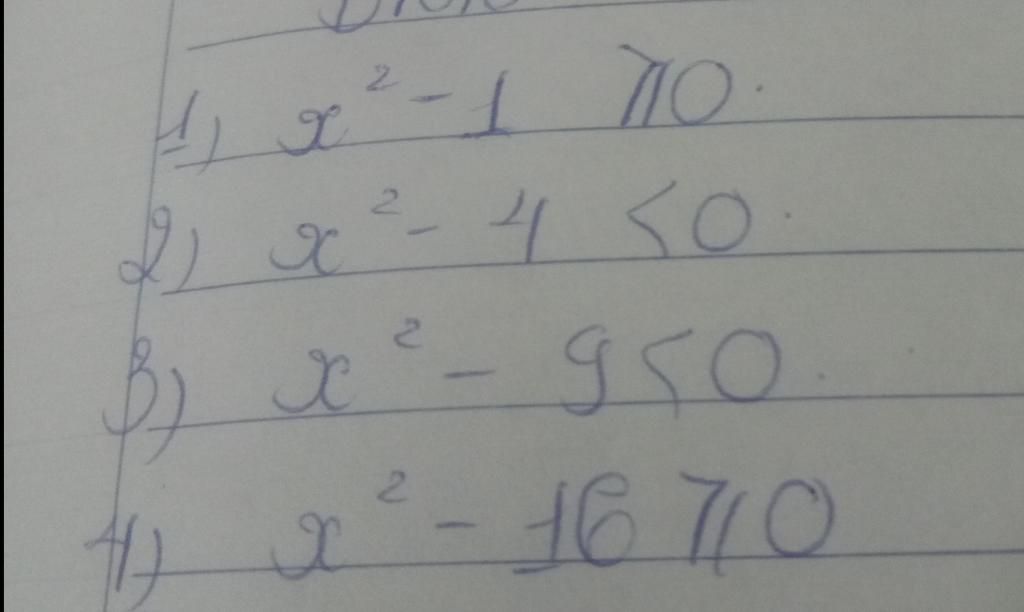 1) x² - 1 ⩾ 0.
2) x² - 4 < 0.
3) x² - 9 < 0.
4) x² - 16 ⩾ 0